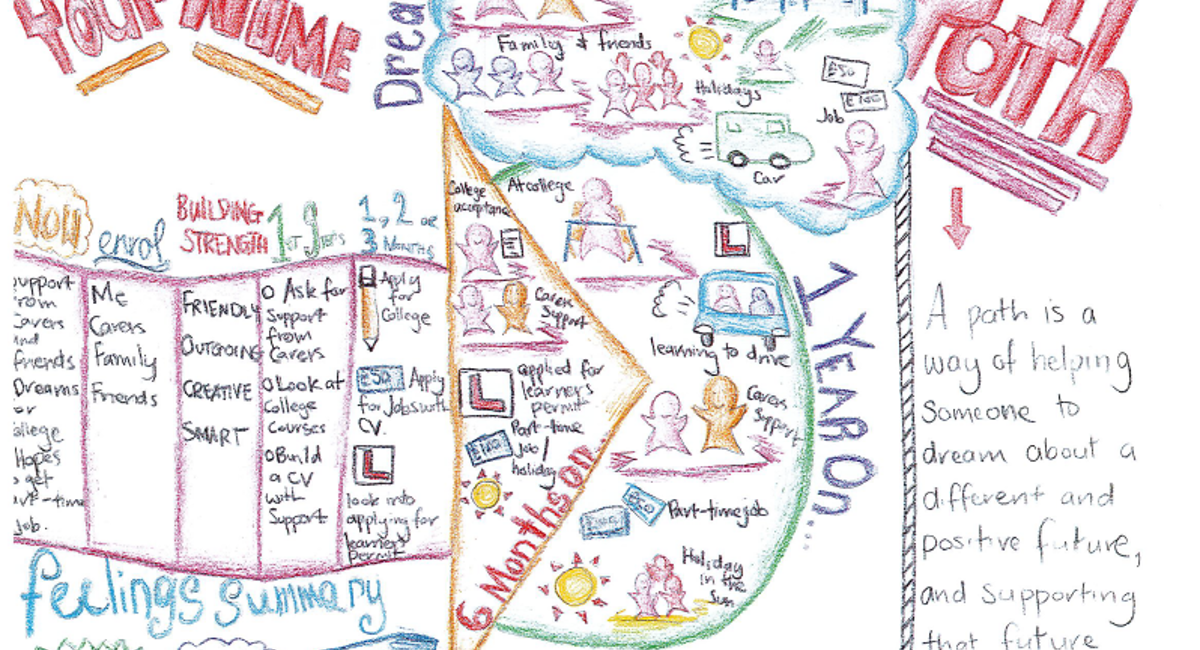 YOUR NAME
Path
Family & friends
Holidays
£50
£100
Job
Car
College
acceptance
At college
L
Carers
Support
learning to drive
applied for
learners
permit
L
Part-time
job/
holiday
£100
6 Months on
Carers
Support
£50
Part-time job
Holiday
in the
Sun
1 YEAR On...
NOW
enrol
BUILDING
STRENGTH
1ST
1, 2 or
3 MONTHS
from
friends
Dreams
Hopes
Job.
Me
Carers
Family
Friends
FRIENDLY
OUTGOING
CREATIVE
SMART
o Ask for
Support
from
Carers
o Look at
College
Courses
o Build
a CV
with
Support
Apply
for
College
£50 Apply
for Jobs with
CV.
L
look into
applying for
learners
permit
feelings summary
A path is a
way of helping
Someone to
dream about a
different and
positive future,
and supporting
that future